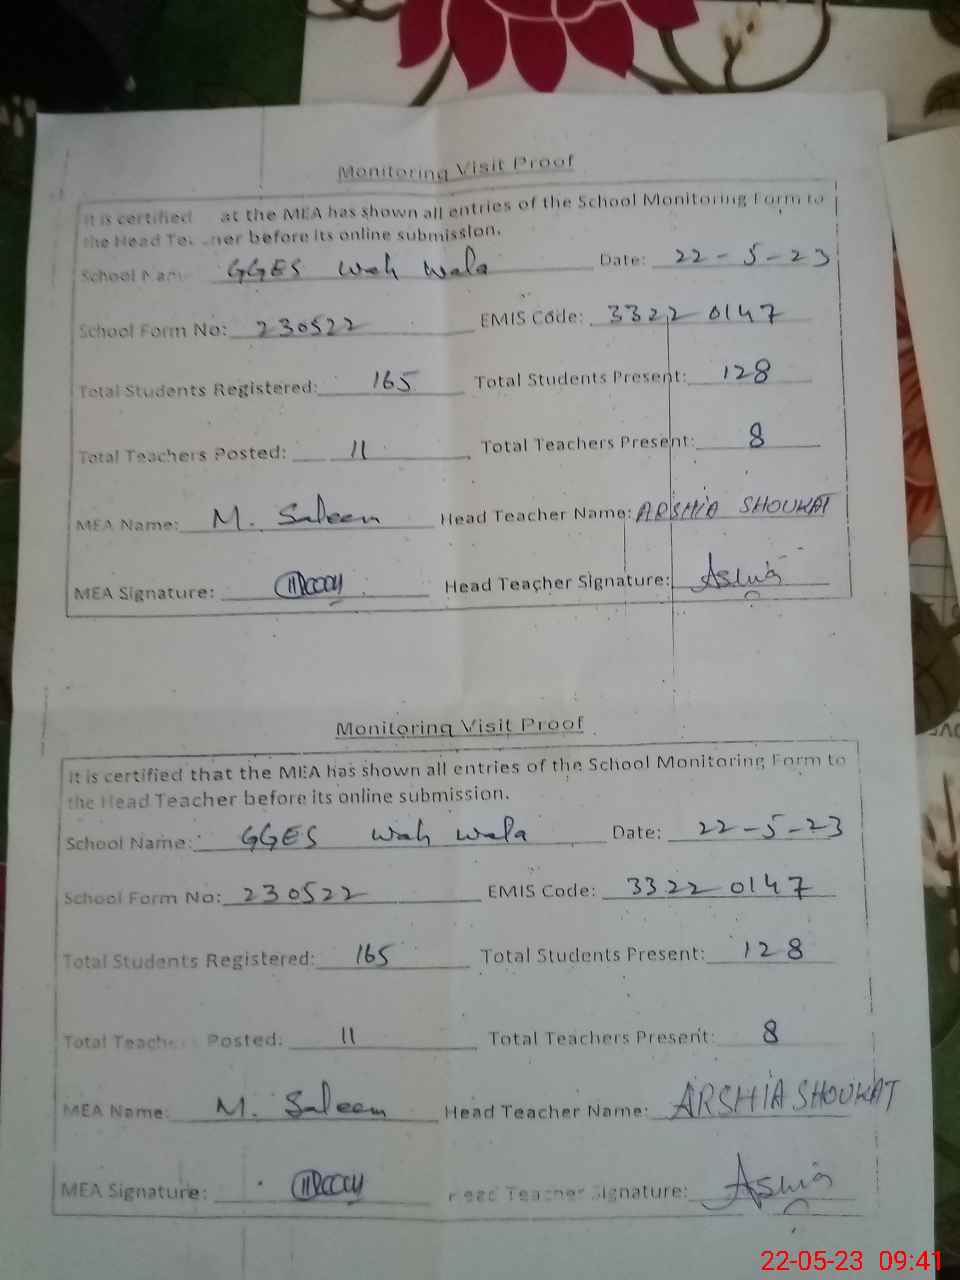 Monitoring Visit Proof
It is certified at the MEA has shown all entries of the School Monitoring Form to
the Head Teacher before its online submission.
School Name GGES Wah Wala Date: 22-5-23
School Form No: 230522 EMIS Code: 33220147
Total Students Registered: 165 Total Students Present: 128
Total Teachers Posted: 11 Total Teachers Present: 8
MEA Name: M. Saleem Head Teacher Name: ARSHIA SHOUKAT
MEA Signature: Head Teacher Signature:
Monitoring Visit Proof
It is certified that the MEA has shown all entries of the School Monitoring Form to
the Head Teacher before its online submission.
School Name: GGES Wah Wala Date: 22-5-23
School Form No: 230522 EMIS Code: 33220147
Total Students Registered: 165 Total Students Present: 128
Total Teachers Posted: 11 Total Teachers Present: 8
MEA Name: M. Saleem Head Teacher Name: ARSHIA SHOUKAT
MEA Signature: Head Teacher Signature:
22-05-23 09:41